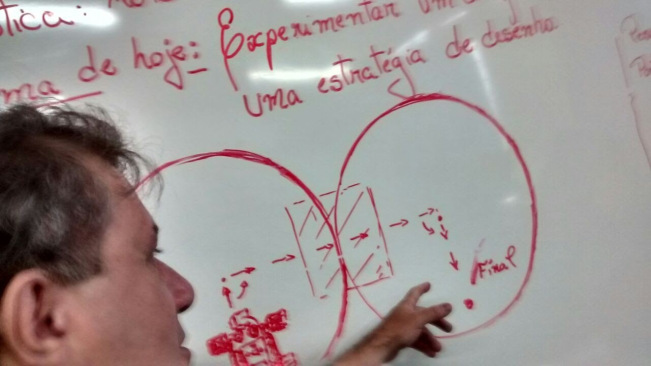 tica:
ma de hoje: Experimentar um
uma estratégia de desenho.
Final